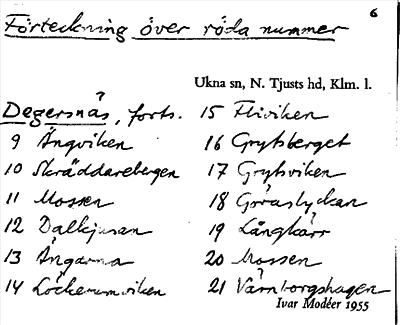 6
Förteckning över röda nummer
Ukna sn, N. Tjusts hd, Klm. l.
Degersnäs, forts.
9 Ängviken
10 Skräddarebergen
11 Mossen
12 Dalkjusan
13 Ängarna
14 Löckerumviken
15 Fliviken
16 Grytsberget
17 Grytsviken
18 Göraslyckan
19 Långkärr
20 Mossen
21 Värnborgshagen
Ivar Modéer 1955